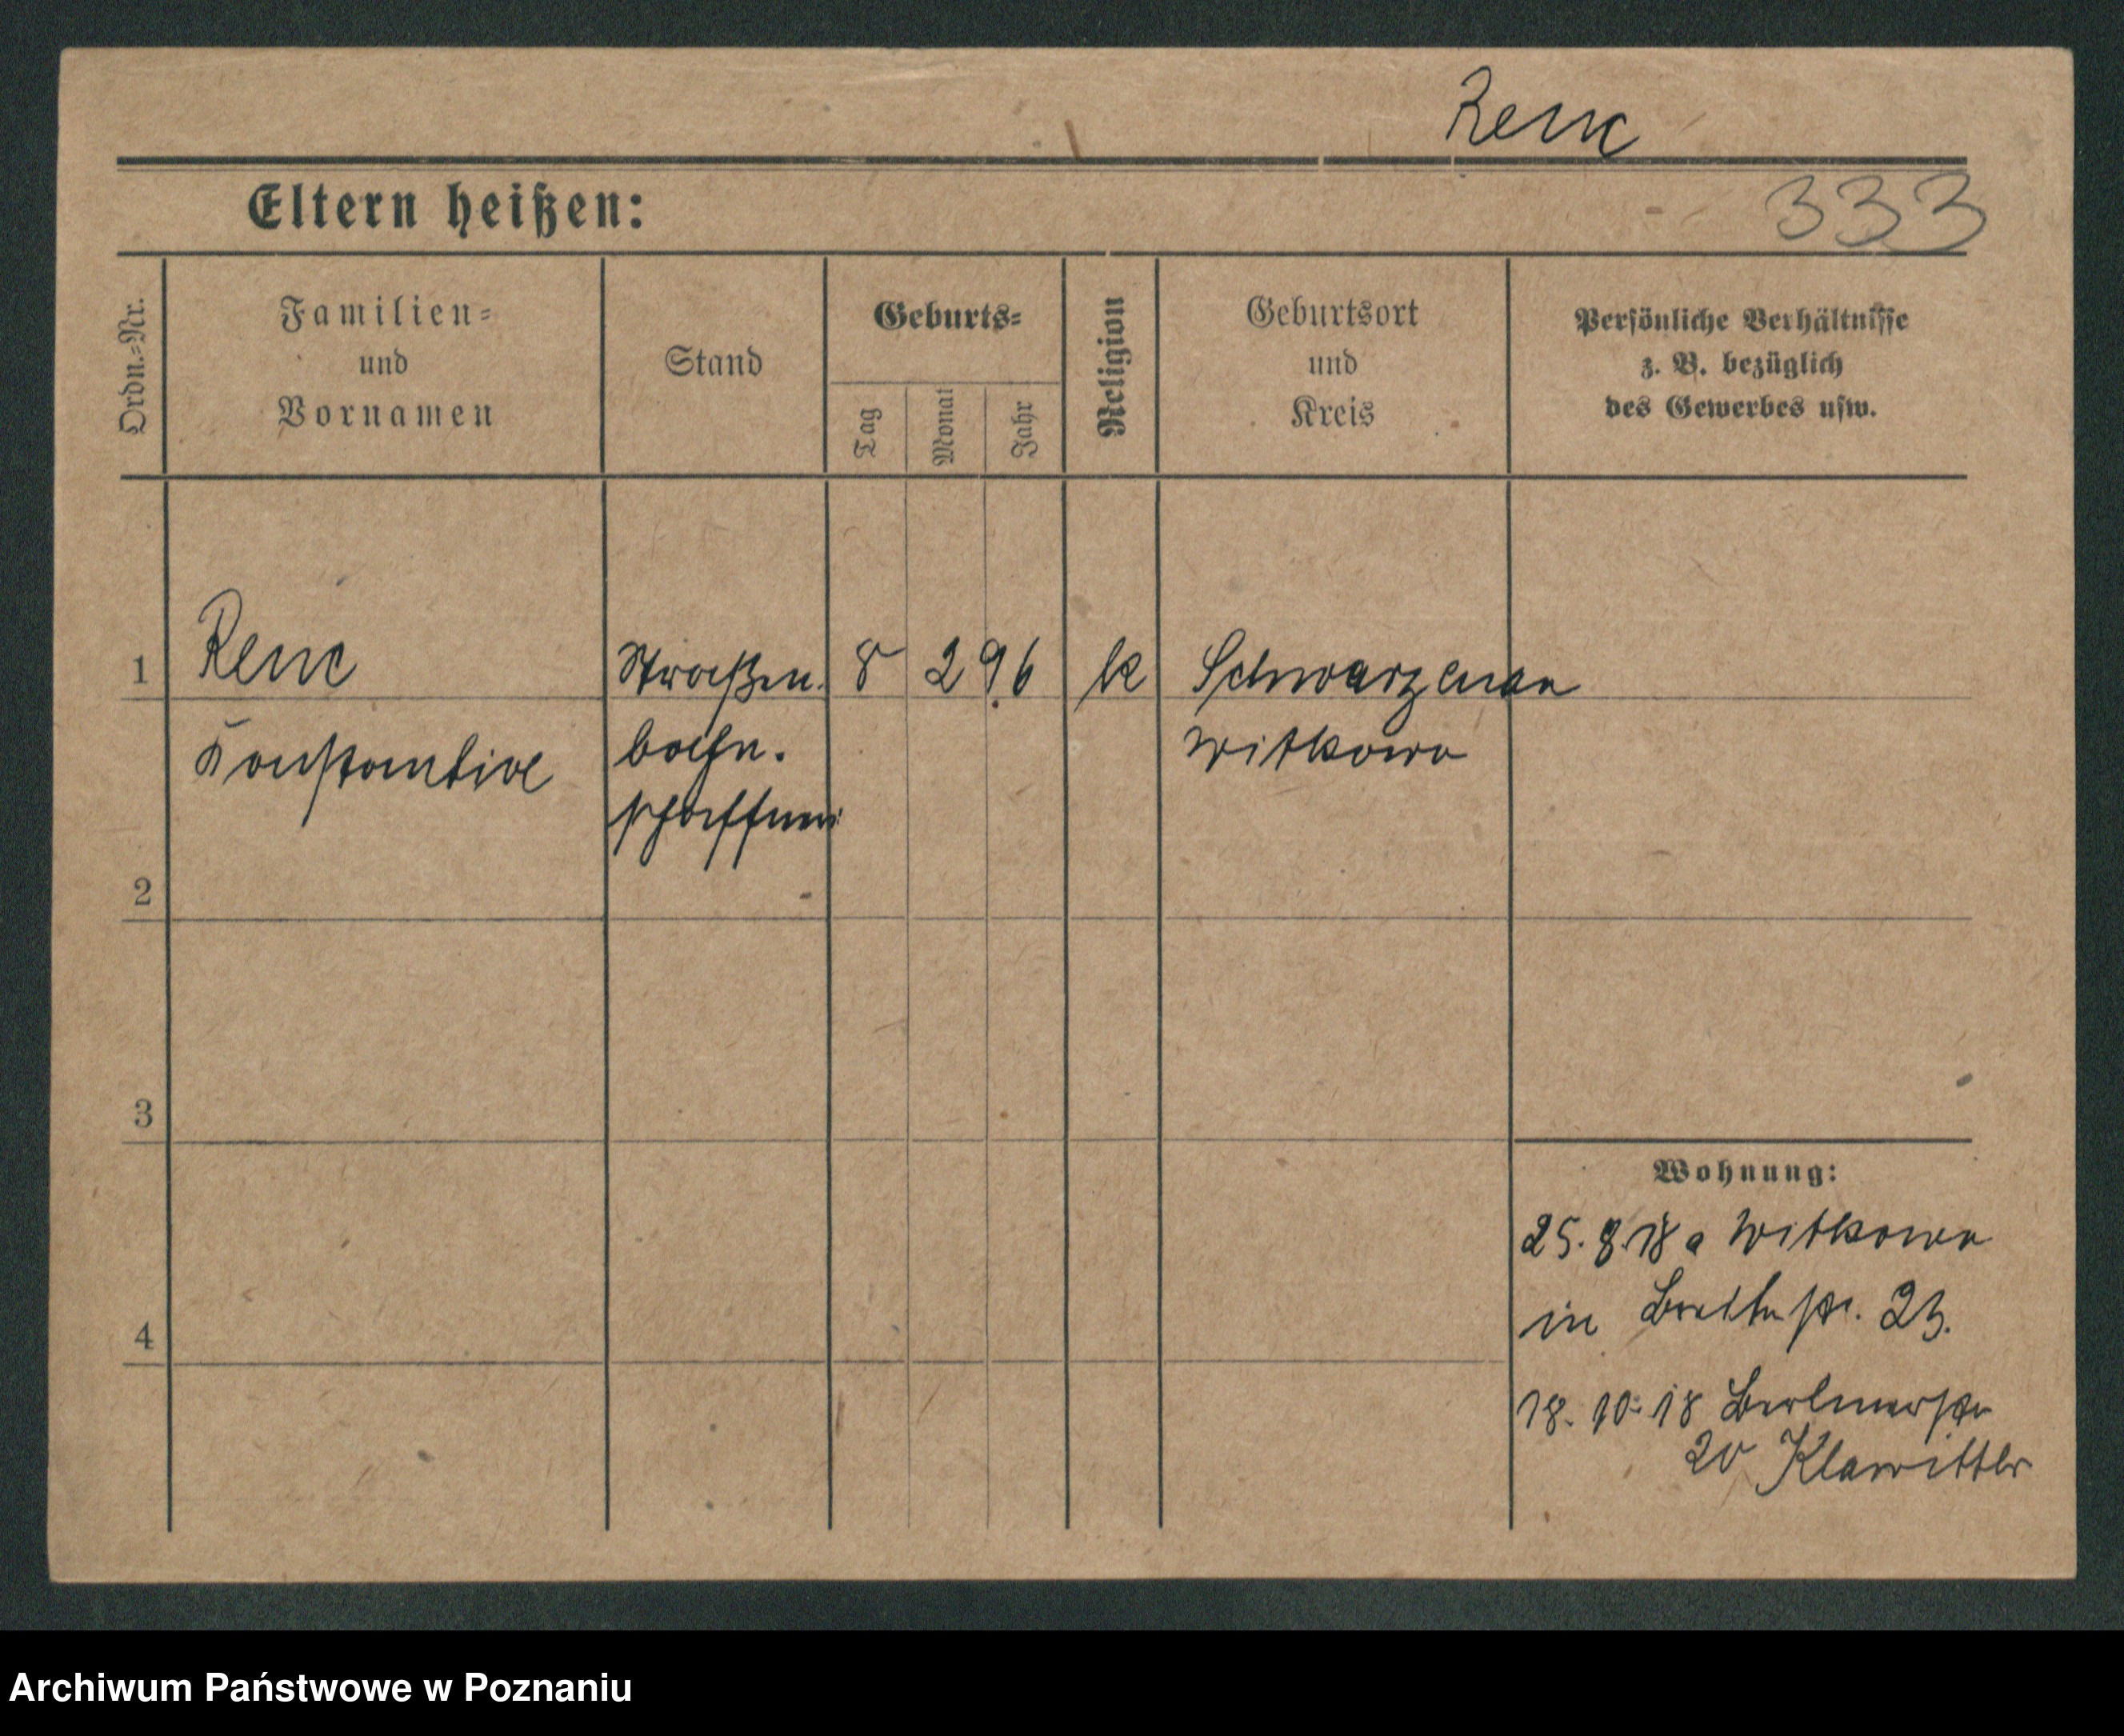 Renc
Eltern heißen:
333
Ordn.-Nr.
Familien-
und
Vornamen
Stand
Geburts-
Tag
Monat
Jahr
Religion
Geburtsort
und
Kreis
Persönliche Verhältnisse
z. B. bezüglich
des Gewerbes usw.
1 Renc Straßen 8 2 96 k Schwarzenau
bahn. Witkowo
schaffneri
2
3
4
Wohnung:
25. 9. 18 a Witkowo
in 23.
18. 10. 18 Berlinerstr
20 Klawitter
Archiwum Państwowe w Poznaniu